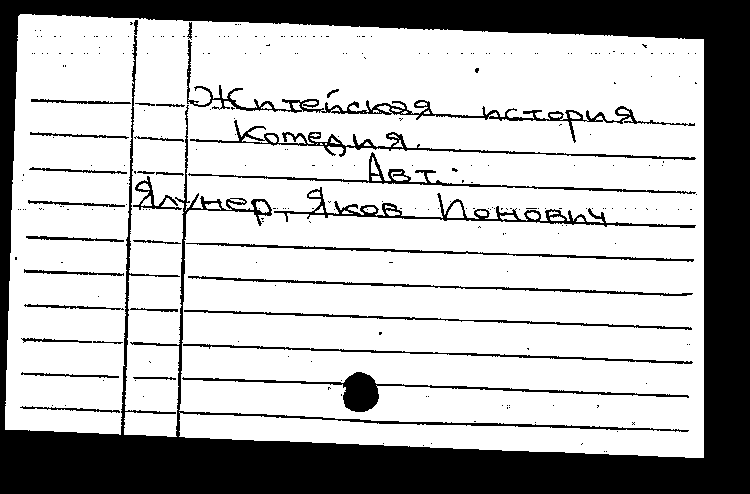 Житейская история.
Комедия.
Авт.:
Ялунер, Яков Ионович